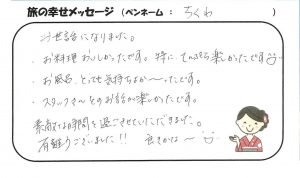 旅の幸せメッセージ（ペンネーム：ちくわ）
・お世話になりました。
・お料理おいしかったです。特に てんぷら 楽しかったです
・お風呂、とっても気持ちよか〜ったです。
・スタッフさんとのお話が楽しかったです。
素敵な時間を過ごさせていただきました。
有難うございました!! 良きかな〜